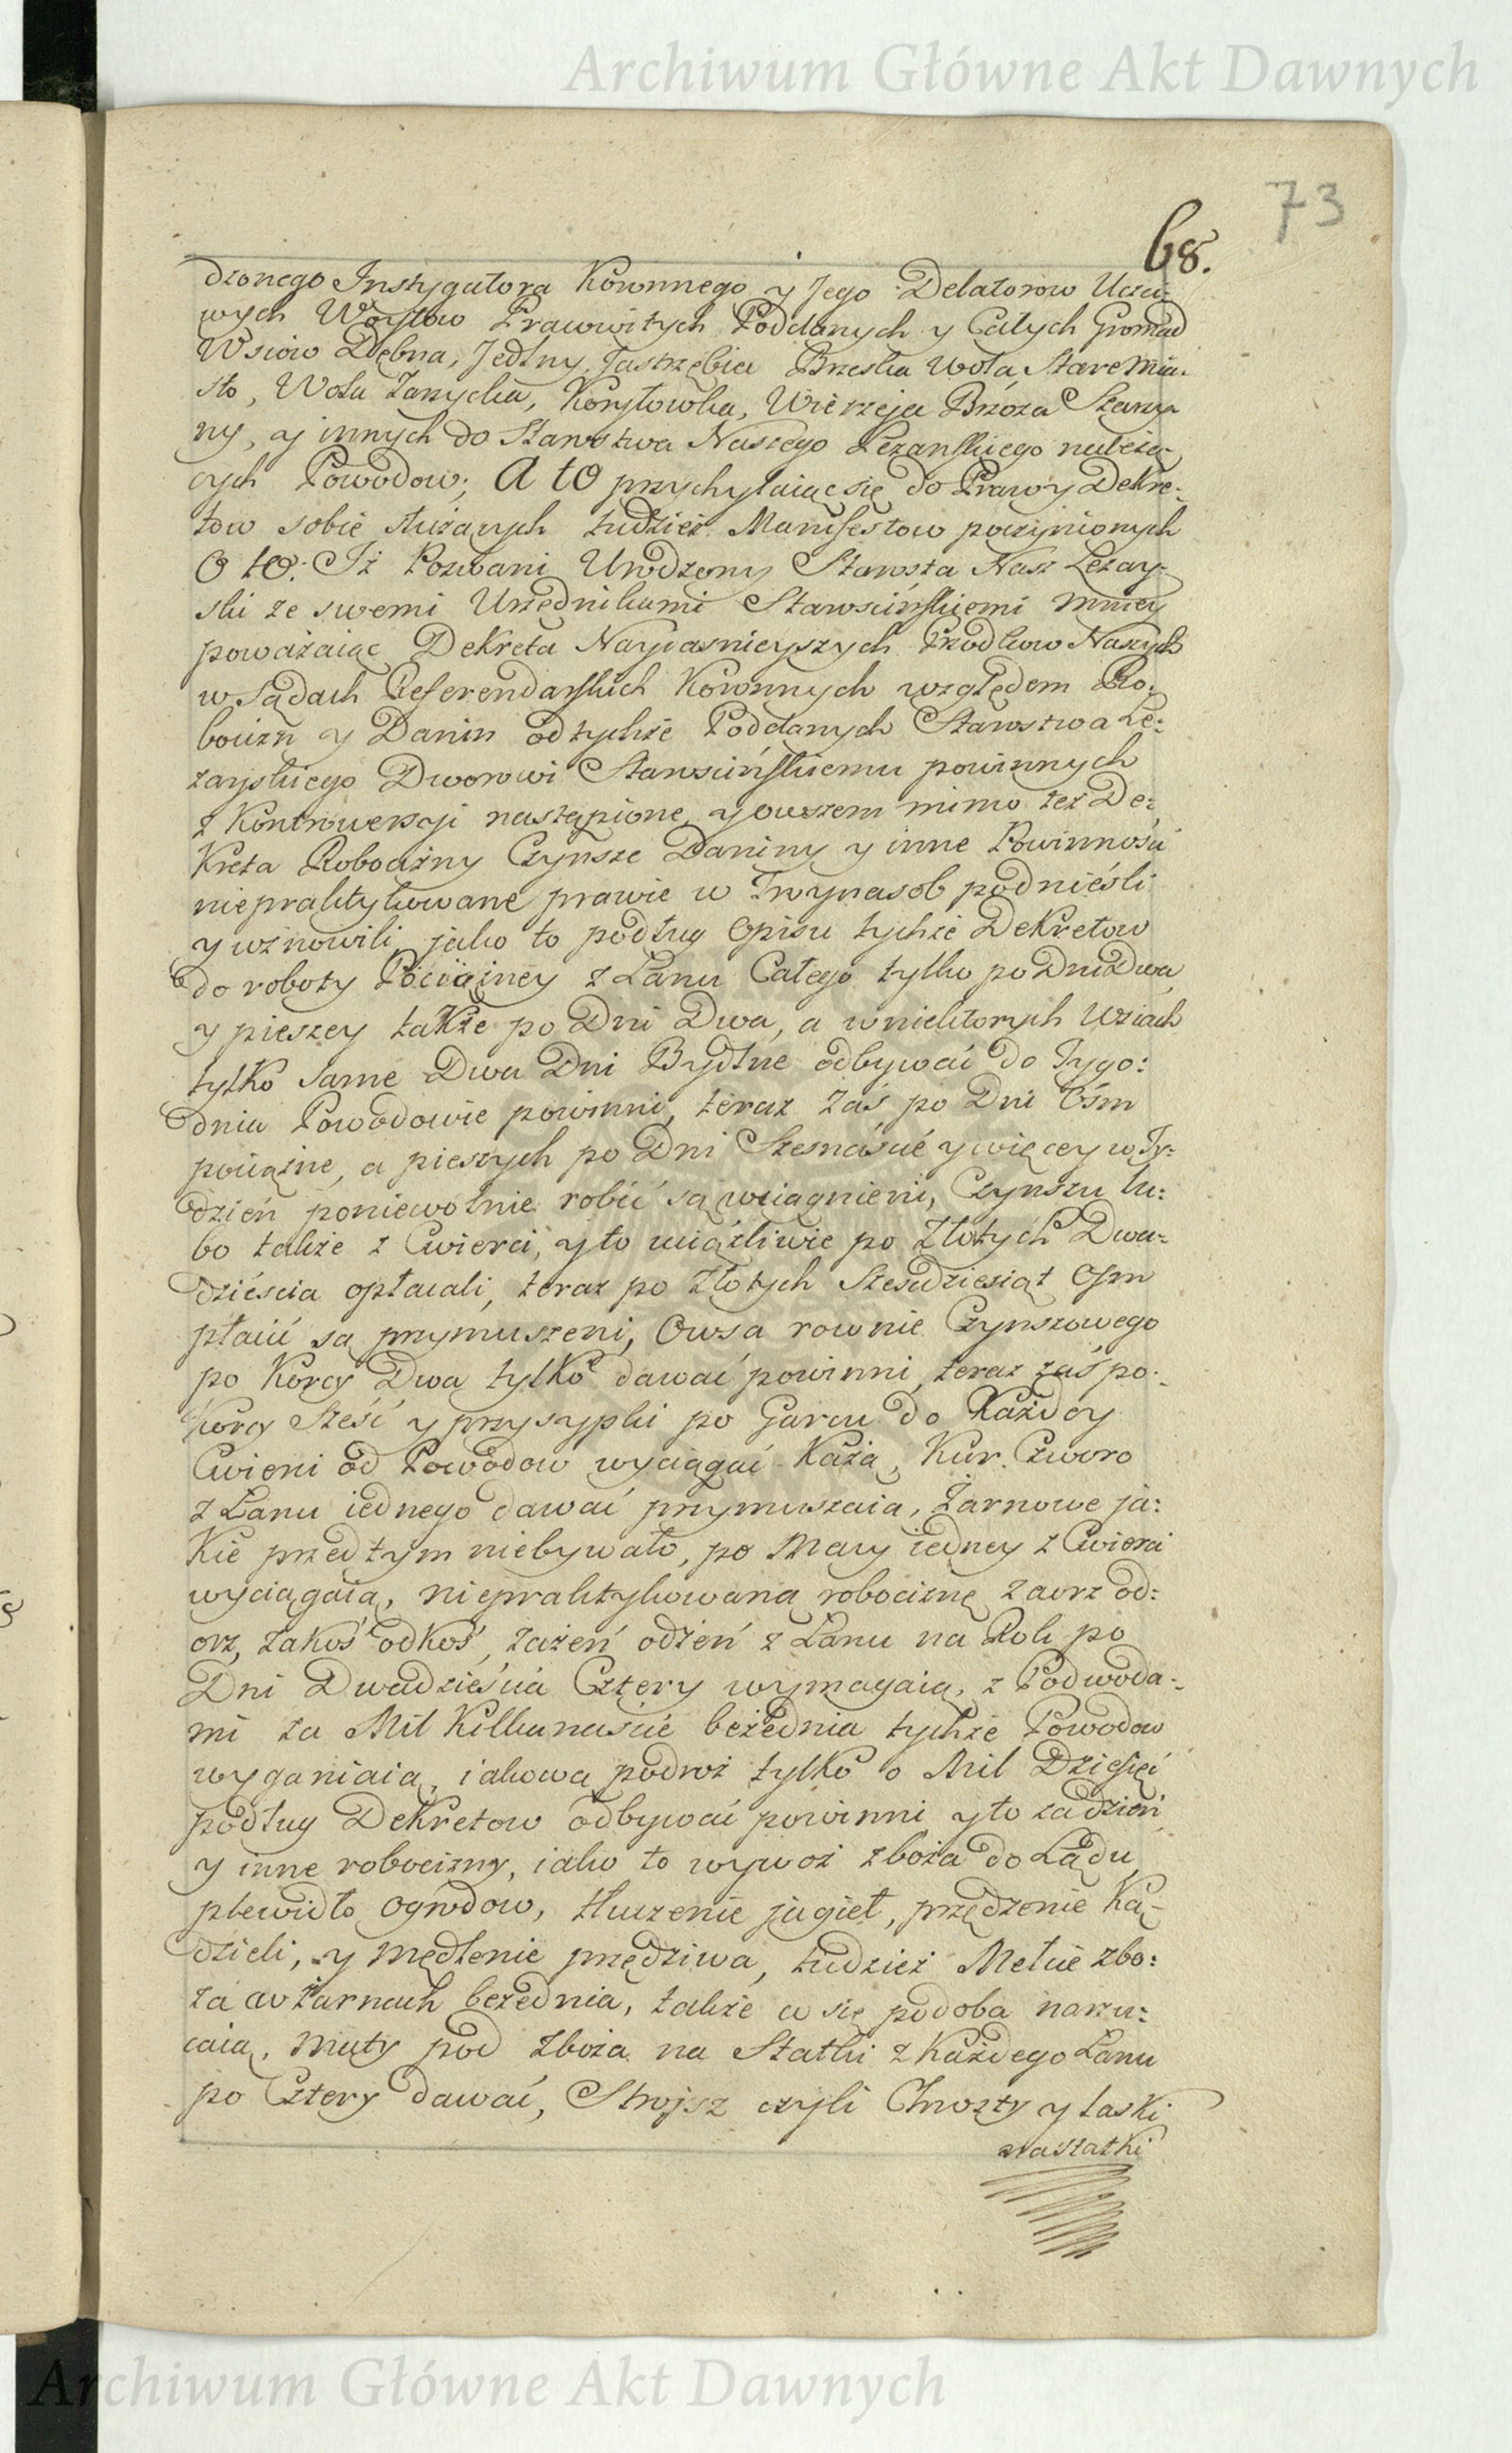 Archiwum Główne Akt Dawnych
73
68.
dzonego Instygatora Koronnego y Jego Delatorow Uczci-
wych Woytow Prawowitych Poddanych y Całych Gromad
Wsiow Dębna, Jedlny, Jastrzębia Brzeska Wola Stare Mia-
sto, Wola Zarzycka, Koryłowka, Wierzeja Brzoza Starzy
ny, y innych do Starostwa Naszego Leżanskiego należą-
cych Powodow; A to przychylaiąc się do Prawy Dekre-
tow sobie służących tudzież Manifestow poczynionych
O to: Iż Pozwani Urodzony Starosta Nasz Leżay-
ski ze swemi Urzędnikami Starościńskiemi mniey
poważaiąc Dekreta Nayiasnieyszych Przodkow Naszych
w Sądach Referendarskich Koronnych względem Ro-
bocizn y Danin od tychże Poddanych Starostwa Le-
żayskiego Dworowi Starościńskiemu powinnych
z Kontrowersyi nastąpione, y owszem mimo też De-
kreta Robocizny Czynsze Daniny y inne Powinności
niepraktykowane prawie w Troynasob podnieśli
y wznowili, jako to podług Opisu tychże Dekretow
do roboty Pociążney z Łanu Całego tylko po Dni Dwa
y pieszey także po Dni Dwa, a w niektorych Wsiach
tylko same Dwa Dni Bydlne odbywać do Tygo:
dnia Powodowie powinni, teraz zaś po Dni Ośm
pociążne, a pieszych po Dni Szesnaście y więcey w Ty-
dzień poniewolnie robić są wciągnieni, Czynszu lu:
bo także z Cwierci, y to uciążliwie po Złotych Dwa-
dzieścia opłacali, teraz po Złotych Sześdziesiąt Ośm
płacić są przymuszeni, Owsa rownie Czynszowego
po Korcy Dwa tylko dawać powinni, teraz zaś po-
Korcy Sześć y przysypki po Garcu do Każdey
Cwierci od Powodow wyciągać każą, Kur Czworo
z Łanu iednego dawać przymuszaią, Żarnowe ja:
kie przed tym niebywało, po Mary iedney z Cwierci
wyciągaią, niepraktykowaną robociznę zaorz od:
orz, zakoś odkoś, zażeń odżeń z Łanu na Roli po
Dni Dwadzieścia Cztery wymagaią, z Podwoda-
mi za Mil Kilkanaście beżednia tychże Powodow
wyganiaią, iakową podroż tylko o Mil Dziesięć
podług Dekretow odbywać powinni y to za dzień
y inne robocizny, iako to wywoż zboża do Lądu,
plewidło Ogrodow, tłuczenie jagieł, przędzenie Ką-
dzieli, y mędlenie przędziwa, tudzież Mełcie zbo:
ża w żarnach bezednia, także co się podoba narzu:
caią, maty pod zboża na Statki z Każdego Łanu
po Cztery dawać, Stroysz czyli Chrosty y laski
na statki
Archiwum Główne Akt Dawnych